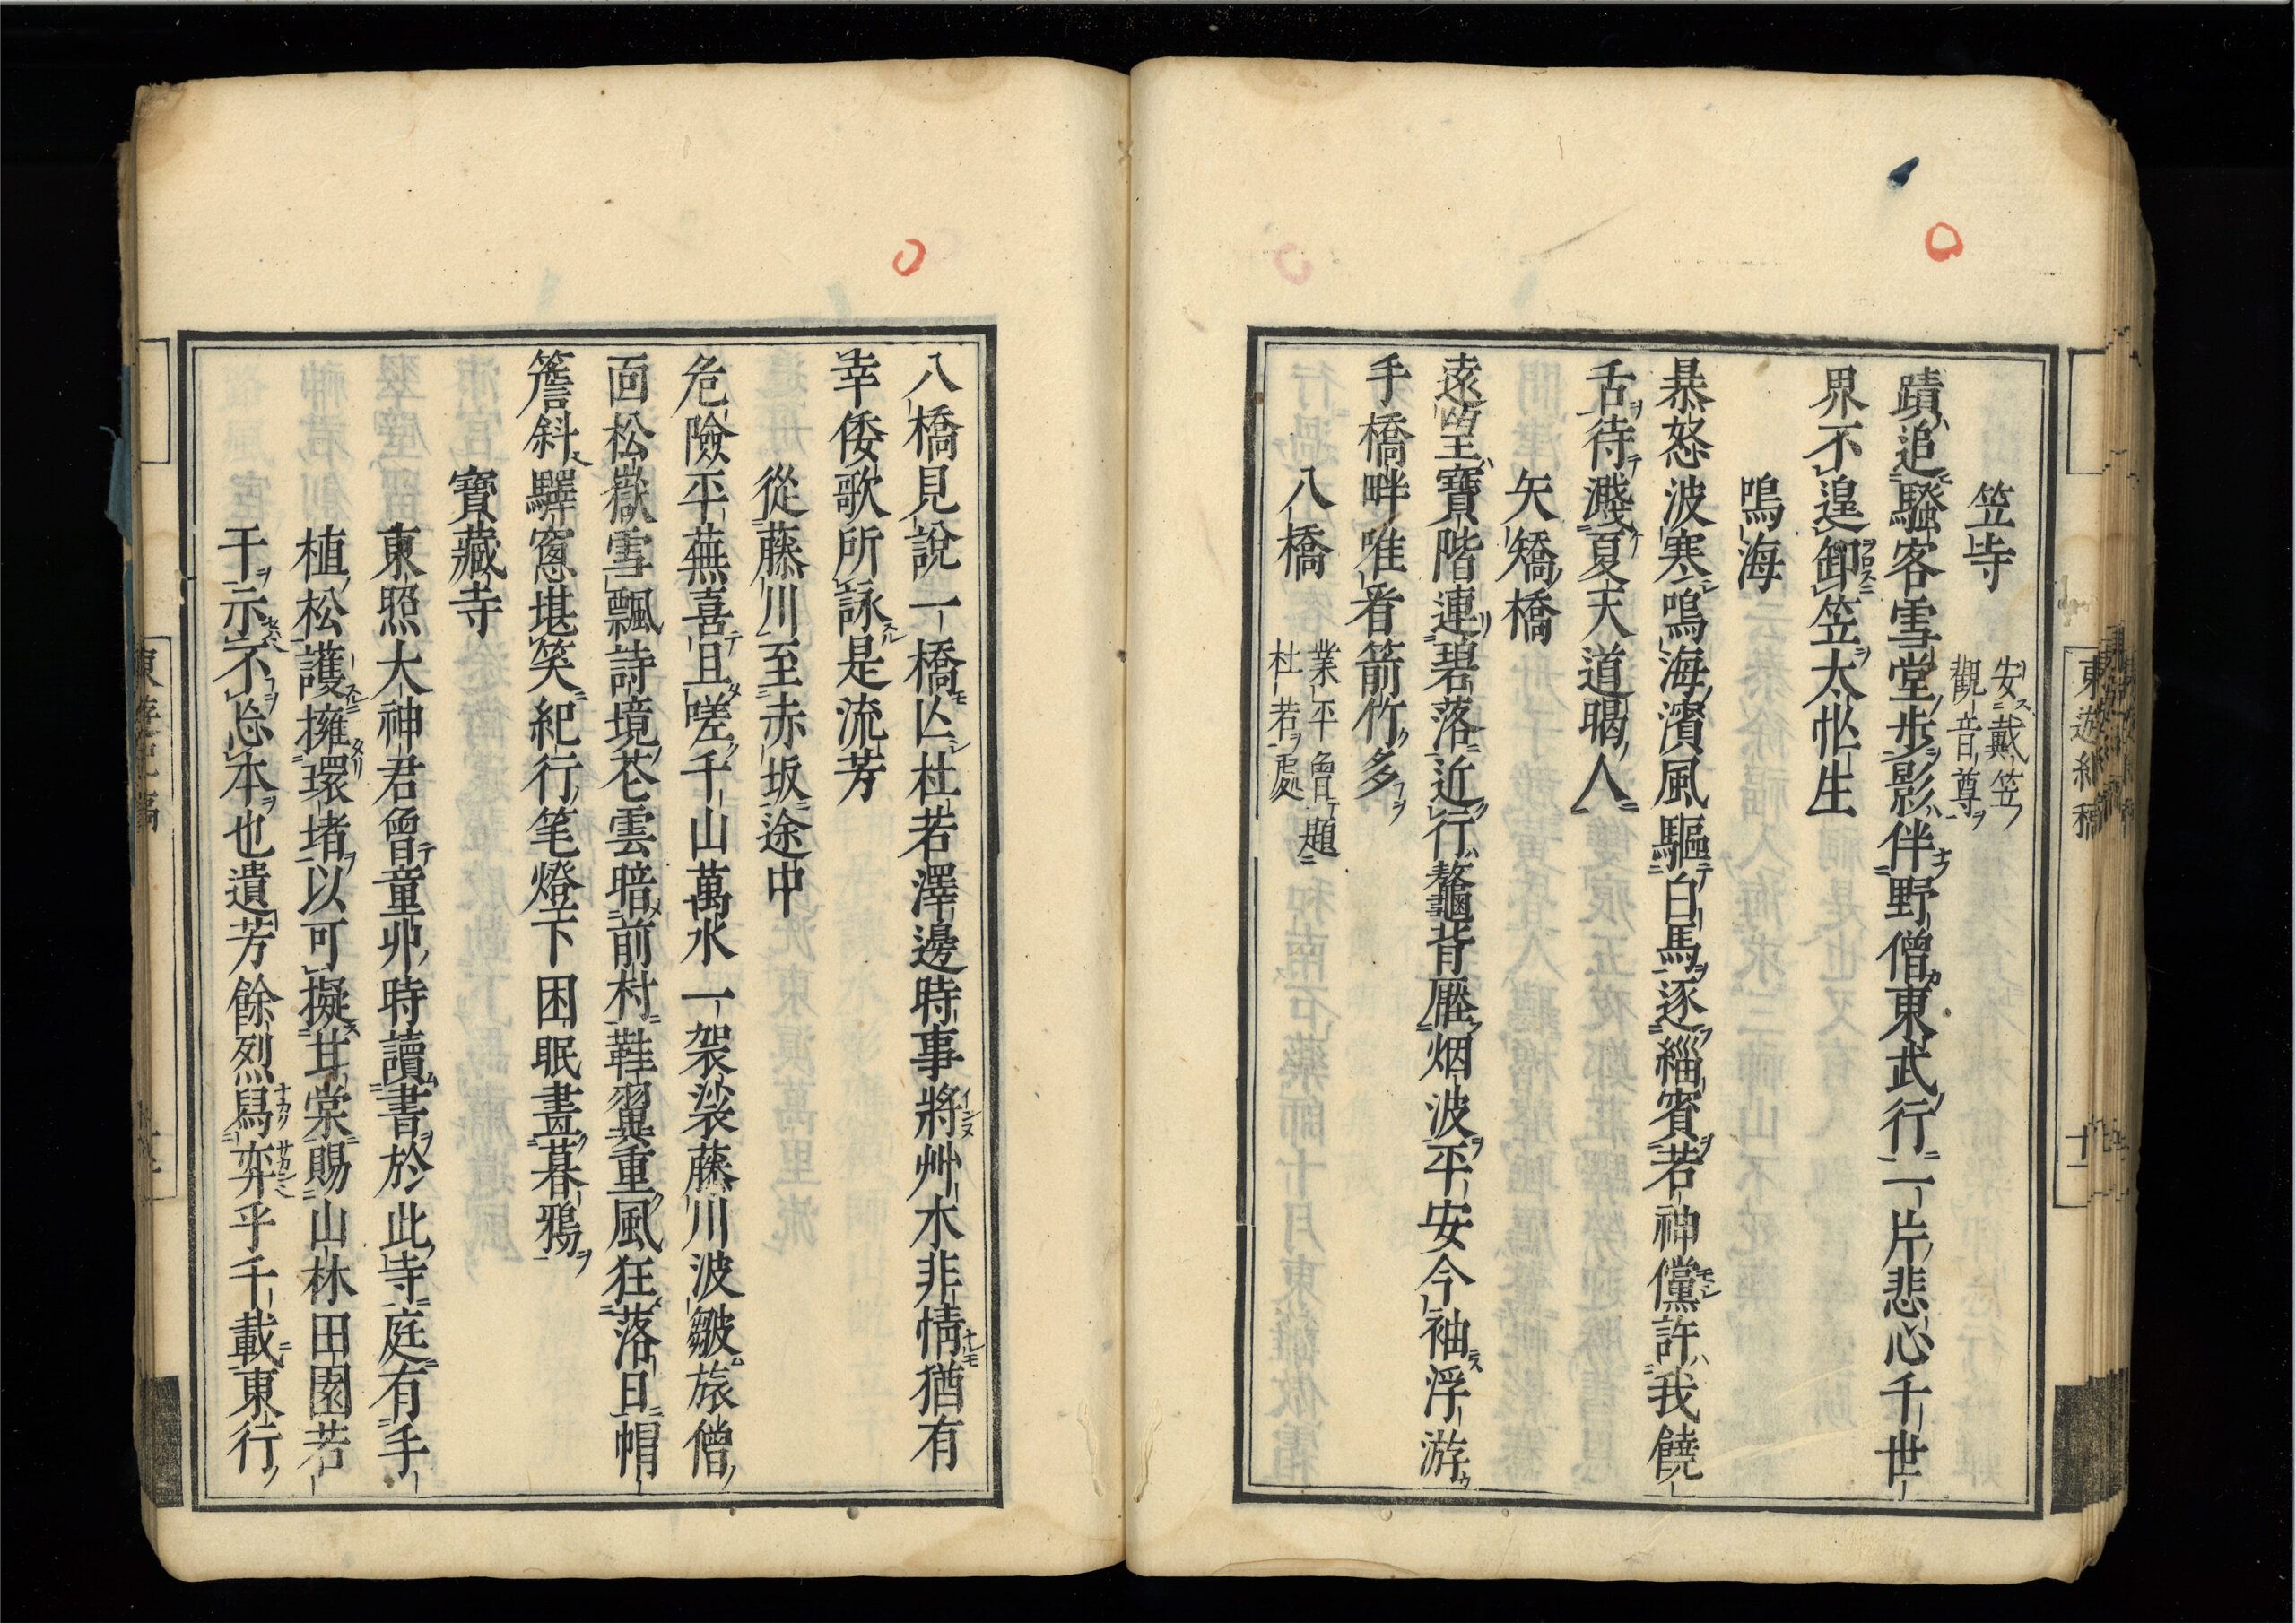 笠寺 安戴笠觀音尊
蹟追騷客雪堂步影伴野僧東武行一片悲心千世
界不遑卸笠太忙生
鳴海
暴怒波寒鳴海濱風驅白馬逐緇賓若神儻許我饒
舌待濺夏天道暍人
矢矯橋
遠望寶階連碧落近行鼇背壓烟波平安今袖浮游
手橋畔唯看箭竹多
八橋 業平曾題杜若處
東遊紀稿
十一
八橋見說一橋亾杜若澤邊時事將艸木非情猶有
幸倭歌所詠是流芳
從藤川至赤坂途中
危險平蕪喜且嗟千山萬水一袈裟藤川波皺旅僧
面松嶽雪飄詩境花雲暗前村鞋翼重風狂落日帽
簷斜驛窻堪笑紀行笔燈下困眠畫暮鴉
寶藏寺
東照大神君曾童丱時讀書於此寺庭有手
植松護擁環堵以可擬甘棠賜山林田園若
干示不忘本也遺芳餘烈曷弈乎千載東行